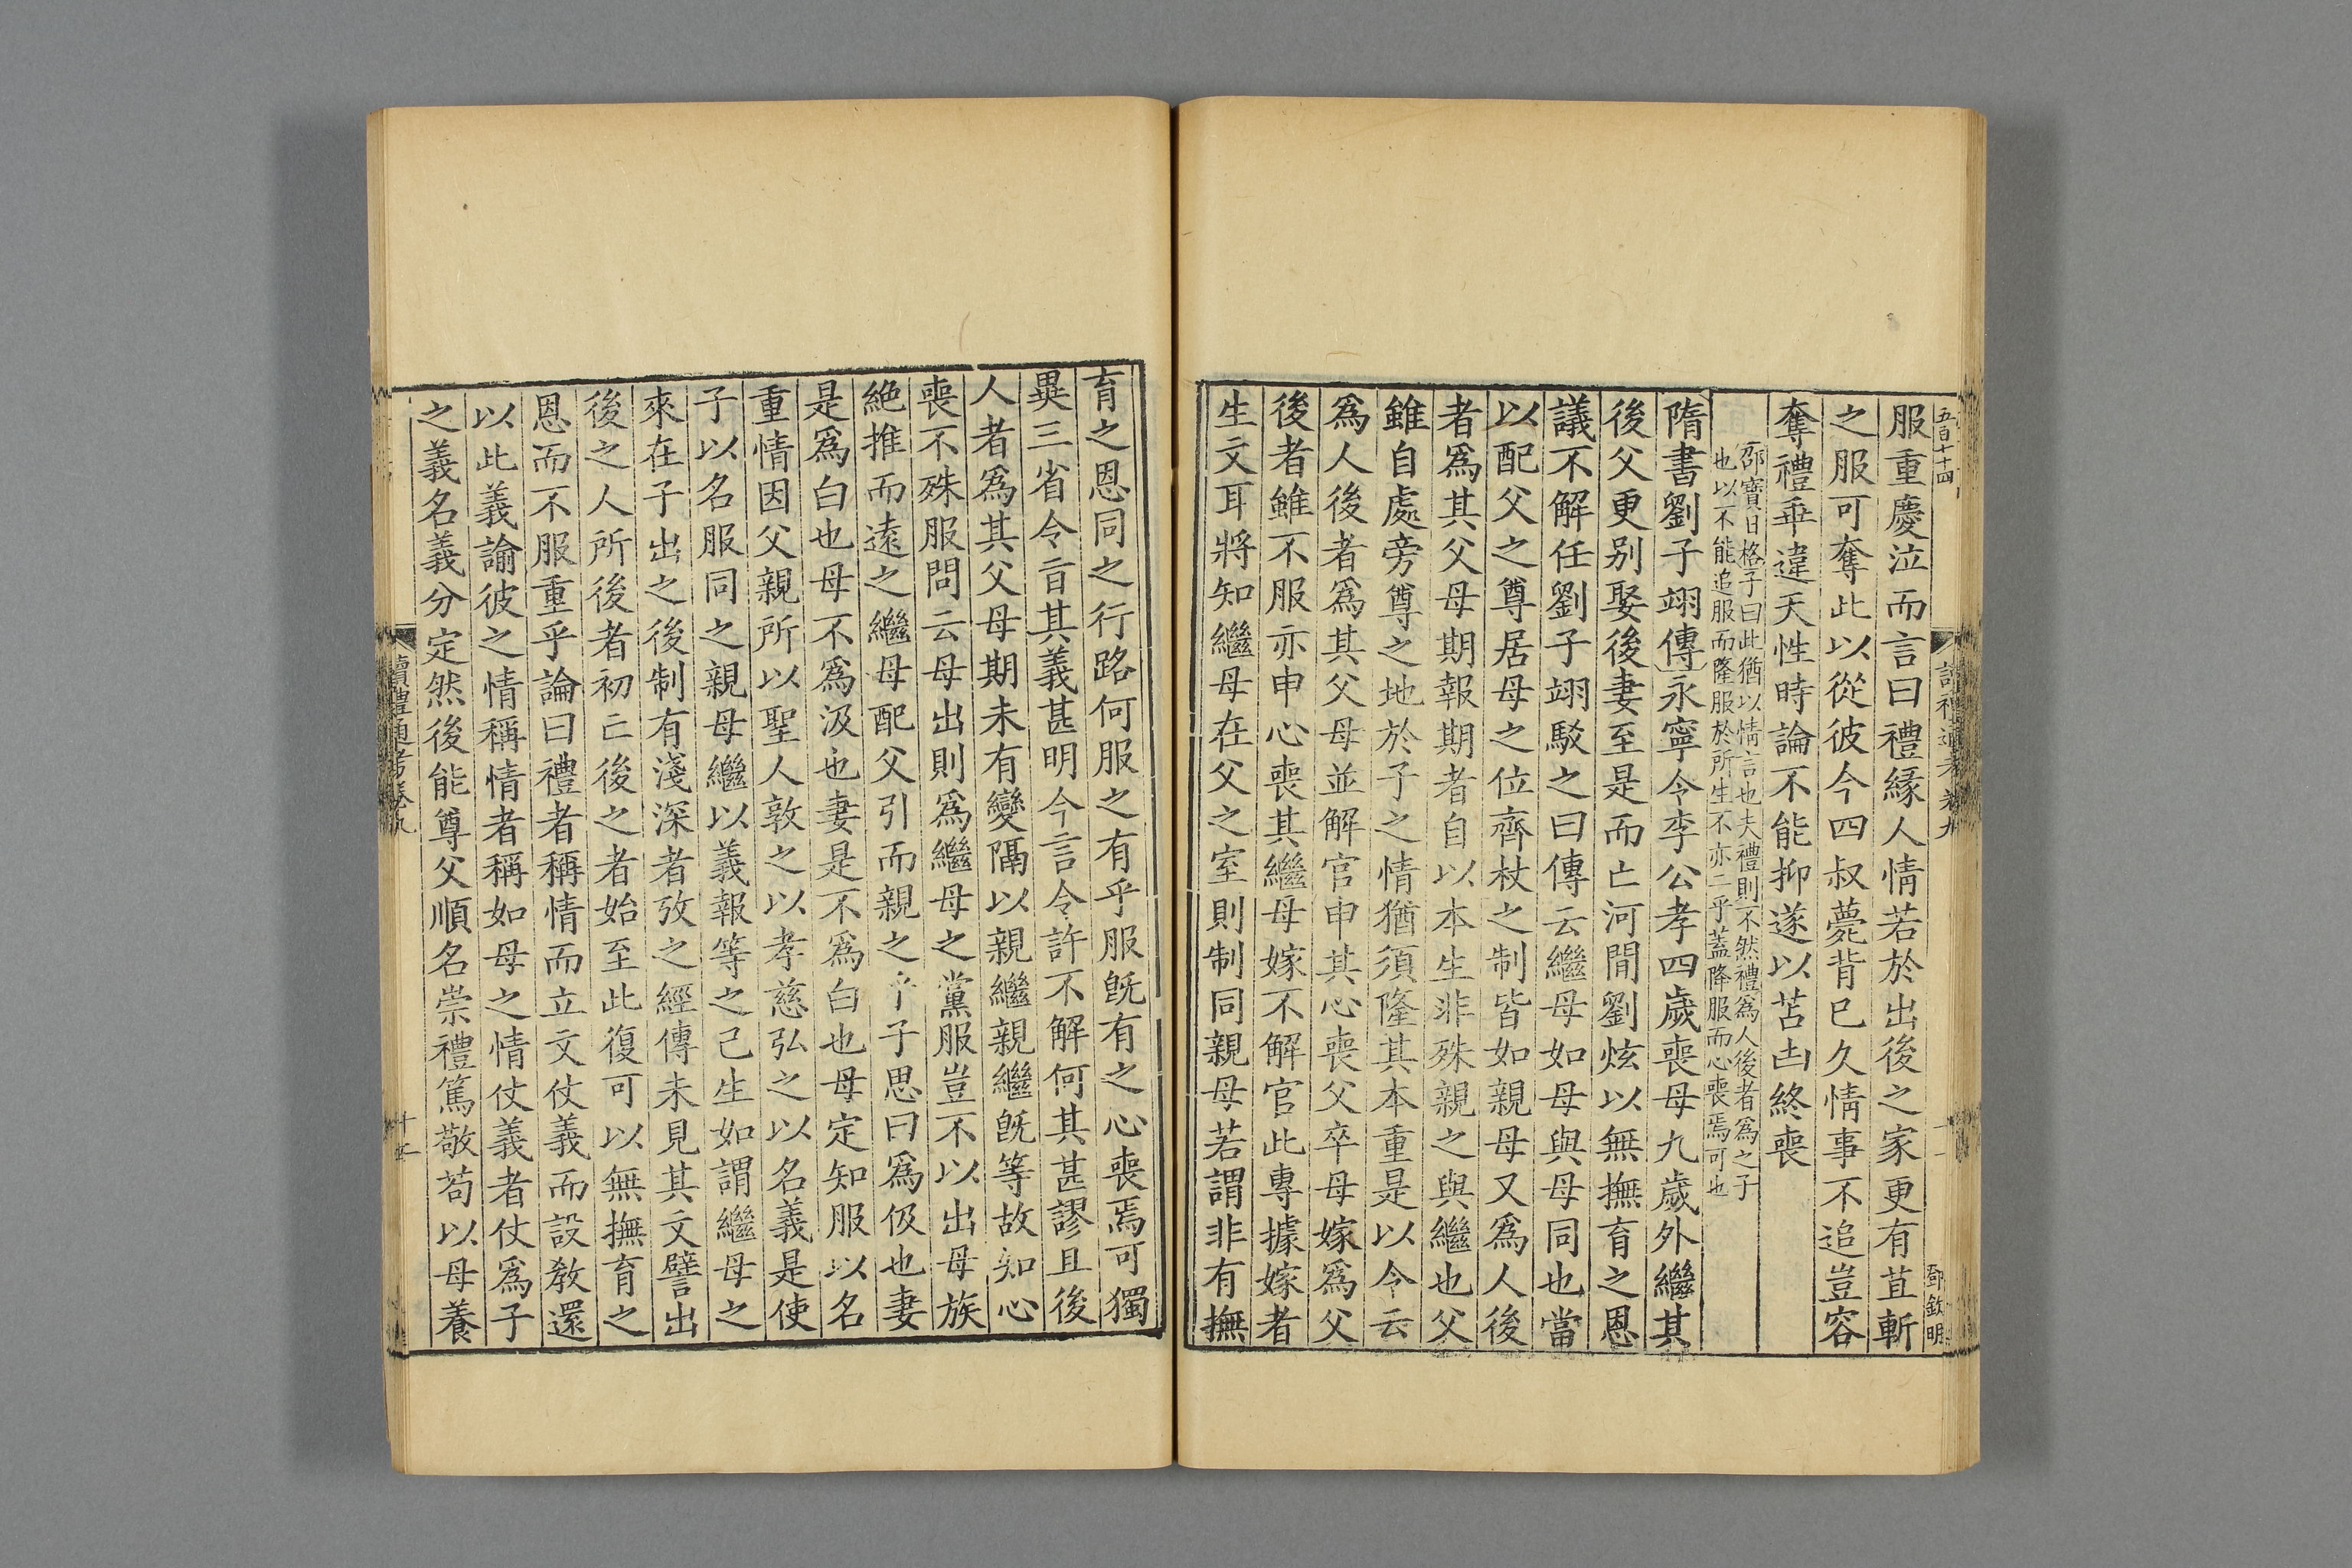 五百十四
讀禮通考卷九
鄧欽明
服重慶泣而言曰禮緣人情若於出後之家更有苴斬
之服可奪此以從彼今四叔薨背已久情事不追豈容
奪禮乖違天性時論不能抑遂以苫凷終喪
邵寶曰格子曰此猶以情言也夫禮則不然禮爲人後者爲之子
也以不能追服而隆服於所生不亦二乎蓋降服而心喪焉可也
隋書劉子翊傳永寧令李公孝四歲喪母九歲外繼其
後父更别娶後妻至是而亡河間劉炫以無撫育之恩
議不解任劉子翊駁之曰傳云繼母如母與母同也當
以配父之尊居母之位齊杖之制皆如親母又爲人後
者爲其父母期報期者自以本生非殊親之與繼也父
雖自處旁尊之地於子之情猶須隆其本重是以令云
爲人後者爲其父母並解官申其心喪父卒母嫁爲父
後者雖不服亦申心喪其繼母嫁不解官此專據嫁者
生文耳將知繼母在父之室則制同親母若謂非有撫
育之恩同之行路何服之有乎服既有之心喪焉可獨
異三省令旨其義甚明今言令許不解何其甚謬且後
人者爲其父母期未有變隔以親繼親繼既等故知心
喪不殊服問云母出則爲繼母之黨服豈不以出母族
絶推而遠之繼母配父引而親之乎子思曰爲伋也妻
是爲白也母不爲汲也妻是不爲白也母定知服以名
重情因父親所以聖人敦之以孝慈弘之以名義是使
子以名服同之親母繼以義報等之己生如謂繼母之
來在子出之後制有淺深者攷之經傳未見其文譬出
後之人所後者初亡後之者始至此復可以無撫育之
恩而不服重乎論曰禮者稱情而立文仗義而設教還
以此義諭彼之情稱情者稱如母之情仗義者仗爲子
之義名義分定然後能尊父順名崇禮篤敬苟以母養
讀禮通考卷九